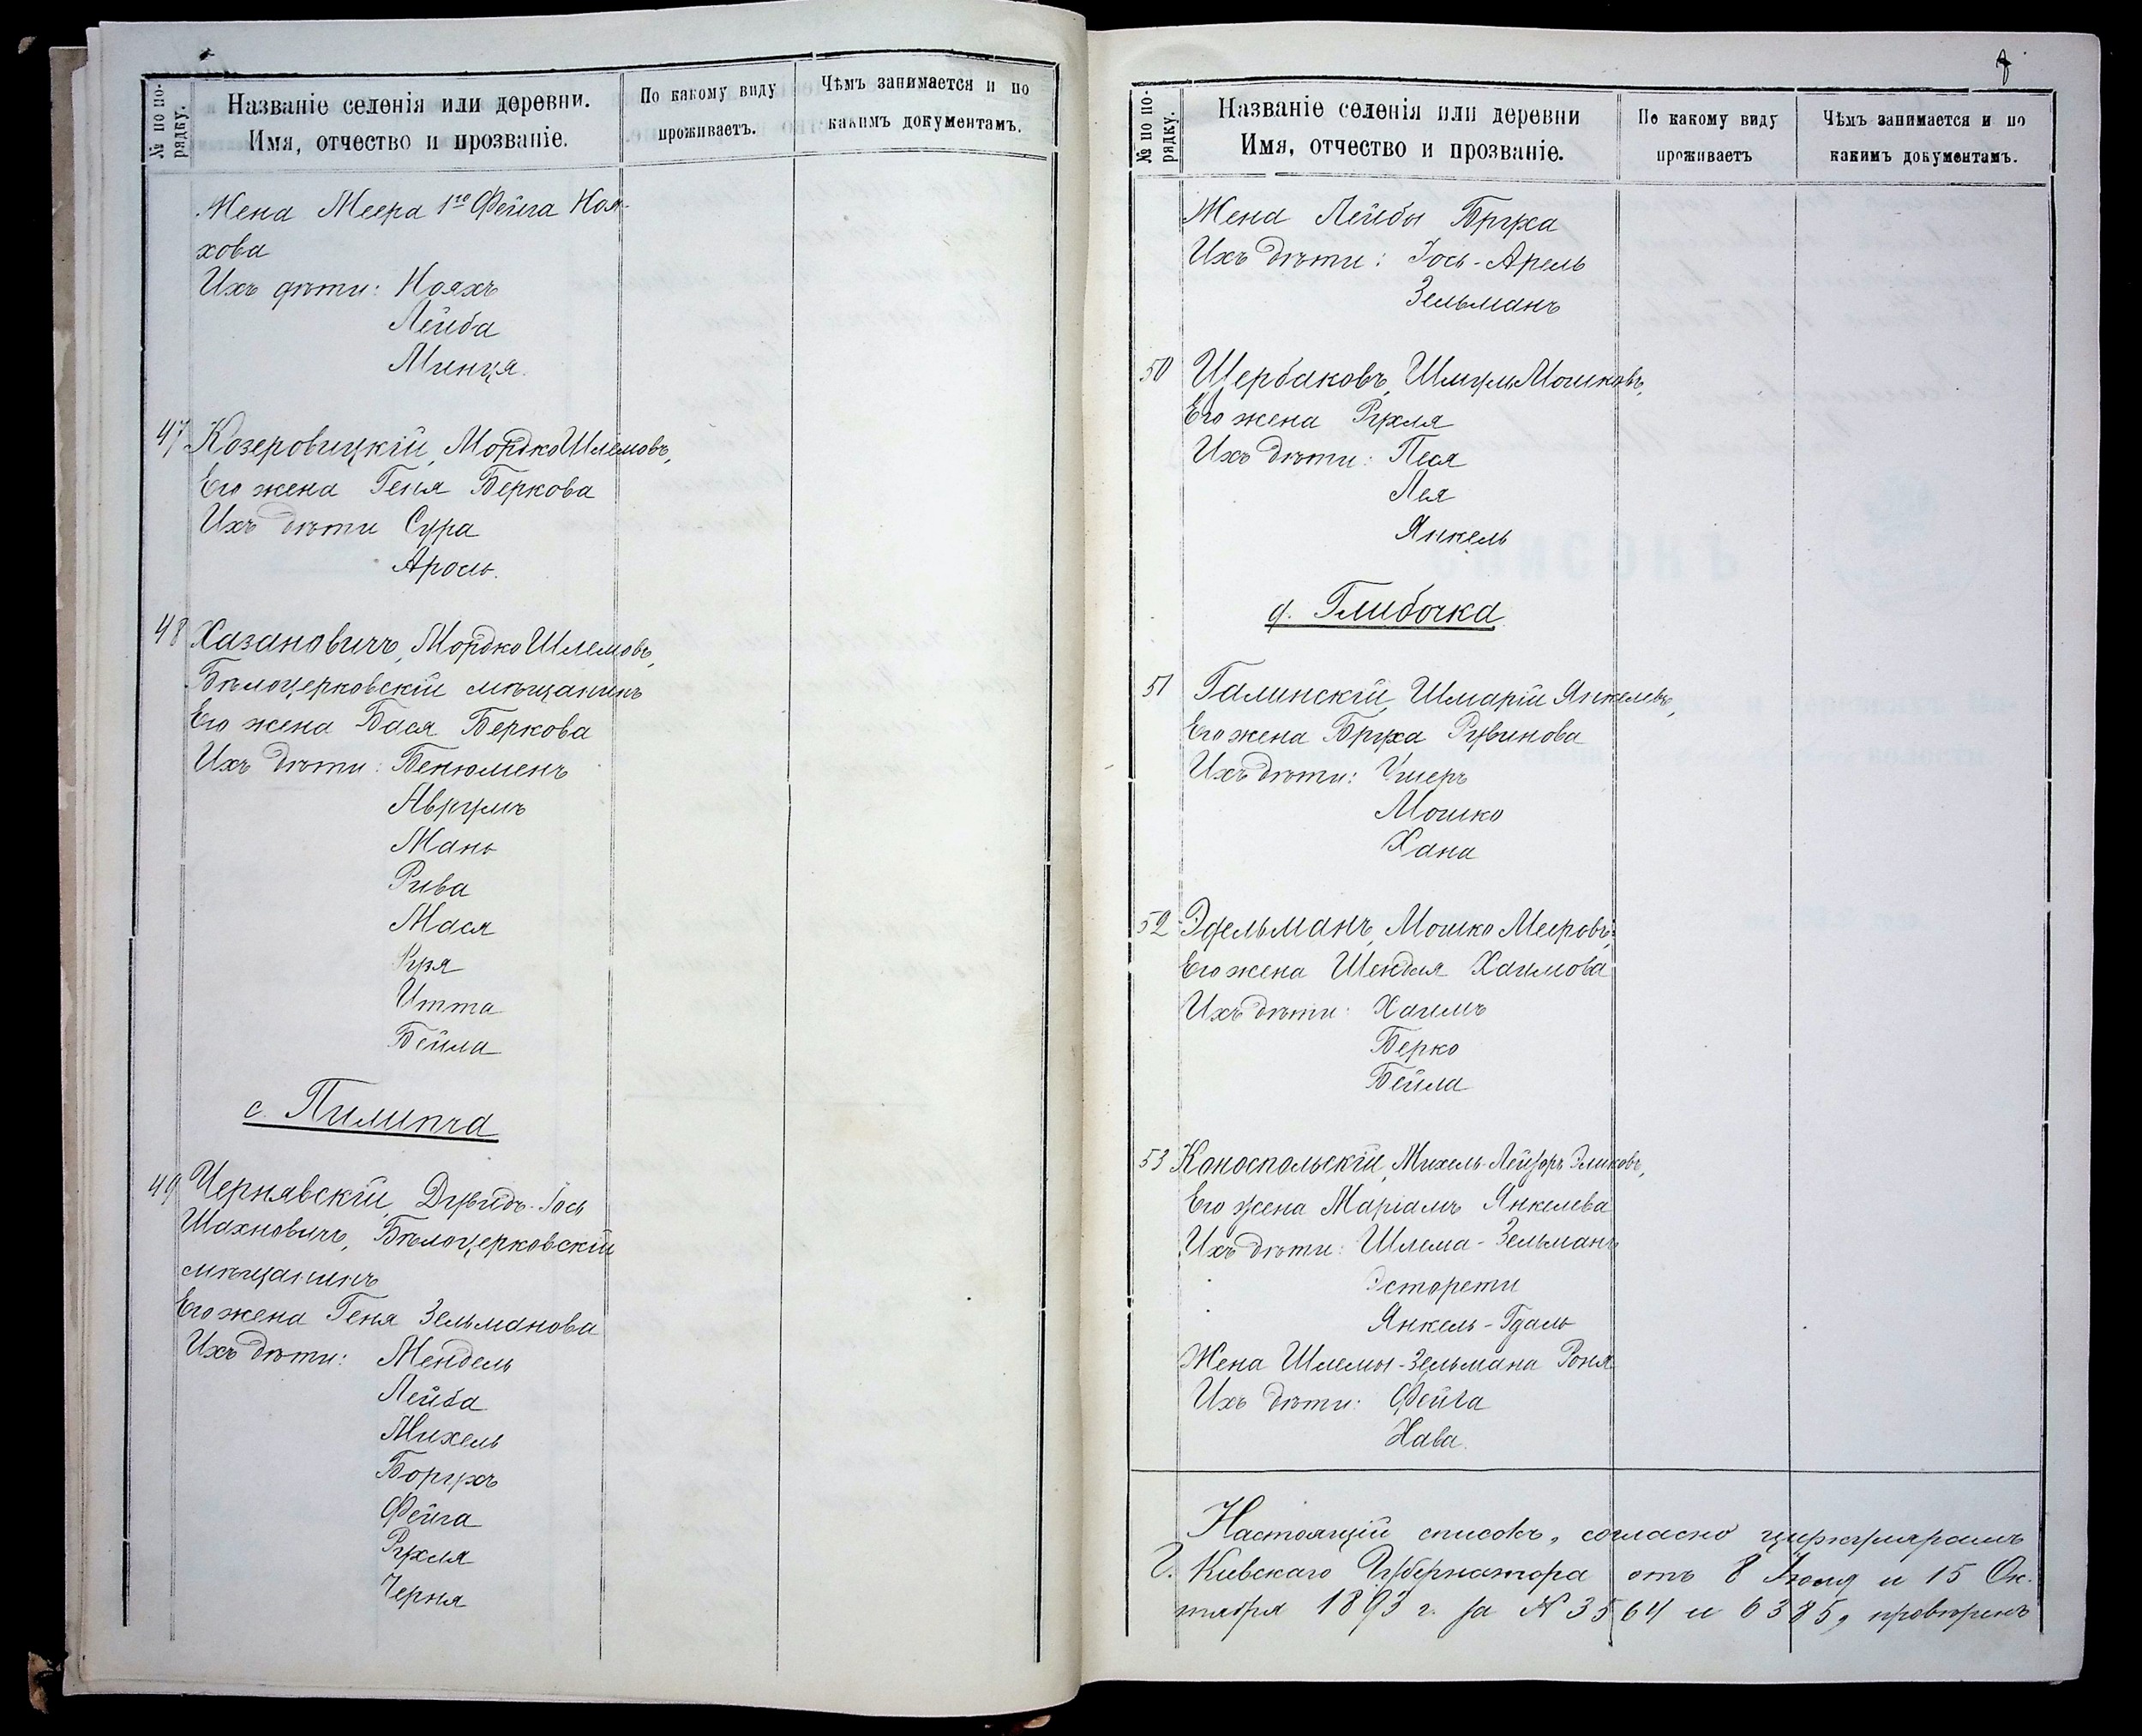 № по по-
рядку.
Названіе селенія или деревни.
Имя, отчество и прозваніе.
По какому виду
проживаетъ.
Чѣмъ занимается и по
какимъ документамъ.
Жена Меера 1го Фейга Ноя-
хова
Ихъ дѣти: Нояхъ
Лейба
Минця.
47 Козеровицкій, Мордко Шлемовъ,
Его жена Геня Беркова
Ихъ дѣти Сура
Арось.
48 Хазановичъ, Мордко Шлемовъ,
Бѣлоцерковскій мѣщанинъ
Его жена Бася Беркова
Ихъ дѣти: Бенюменъ
Аврумъ
Мань
Рива
Мася
Итта
Бейла
с. Пилипча
49 Чернявскій, Дувидъ-Іось
Шахновичъ, Бѣлоцерковскій
мѣщанинъ
Его жена Геня Зельманова
Ихъ дѣти: Мендель
Лейба
Михель
Борухъ
Фейга
Рухля
Черня
№ по по-
рядку.
Названіе селенія или деревни
Имя, отчество и прозваніе.
По какому виду
проживаетъ
Чѣмъ занимается и по
какимъ документамъ.
Жена Лейбы Бруха
Ихъ дѣти: Іось-Арель
Зельманъ
50 Щербаковъ, Шмуль Мошковъ,
Его жена Рухля
Ихъ дѣти: Песя
Лея
Янкель
д. Глибочка
51 Галинскій, Шмарій Янкелевъ,
Его жена Бруха Рувинова
Ихъ дѣти: Ушеръ
Мошко
Хана
52 Эдельманъ, Мошко Мееровъ,
Его жена Шендля Хаимова
Ихъ дѣти: Хаимъ
Берко
Бейла
53 Коноспольскій, Михель-Лейзоръ Эликовъ,
Его жена Маріамъ Янкелева
Ихъ дѣти: Шлема-Зельманъ
Янкель-Гдаль
Жена Шлемы-Зельмана Роня
Ихъ дѣти: Фейга
Хава.
Настоящій списокъ, согласно циркулярамъ
Г. Кіевскаго Губернатора отъ 8 Іюля и 15 Ок-
тября 1893 г. за № 3564 и 6385, провѣренъ